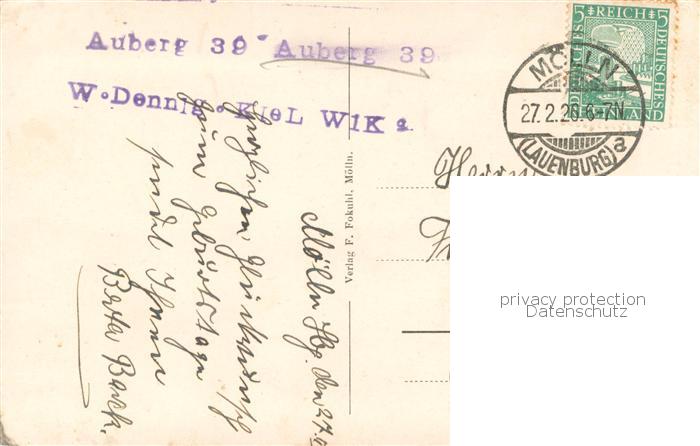 Auberg 39 Auberg 39
W. Dennig. Kiel WIK a.
5 REICH 5
DEUTSCHES
MÖLLN
27.2.26.6-7N
(LAUENBURG) a
Herrn
Verlag F. Fokuhl, Mölln.
Mölln Lbg. den 27.
Herzlichen Glückwunsch
zum Geburtstage
sendet Ihnen
Berta Back.
privacy protection
Datenschutz